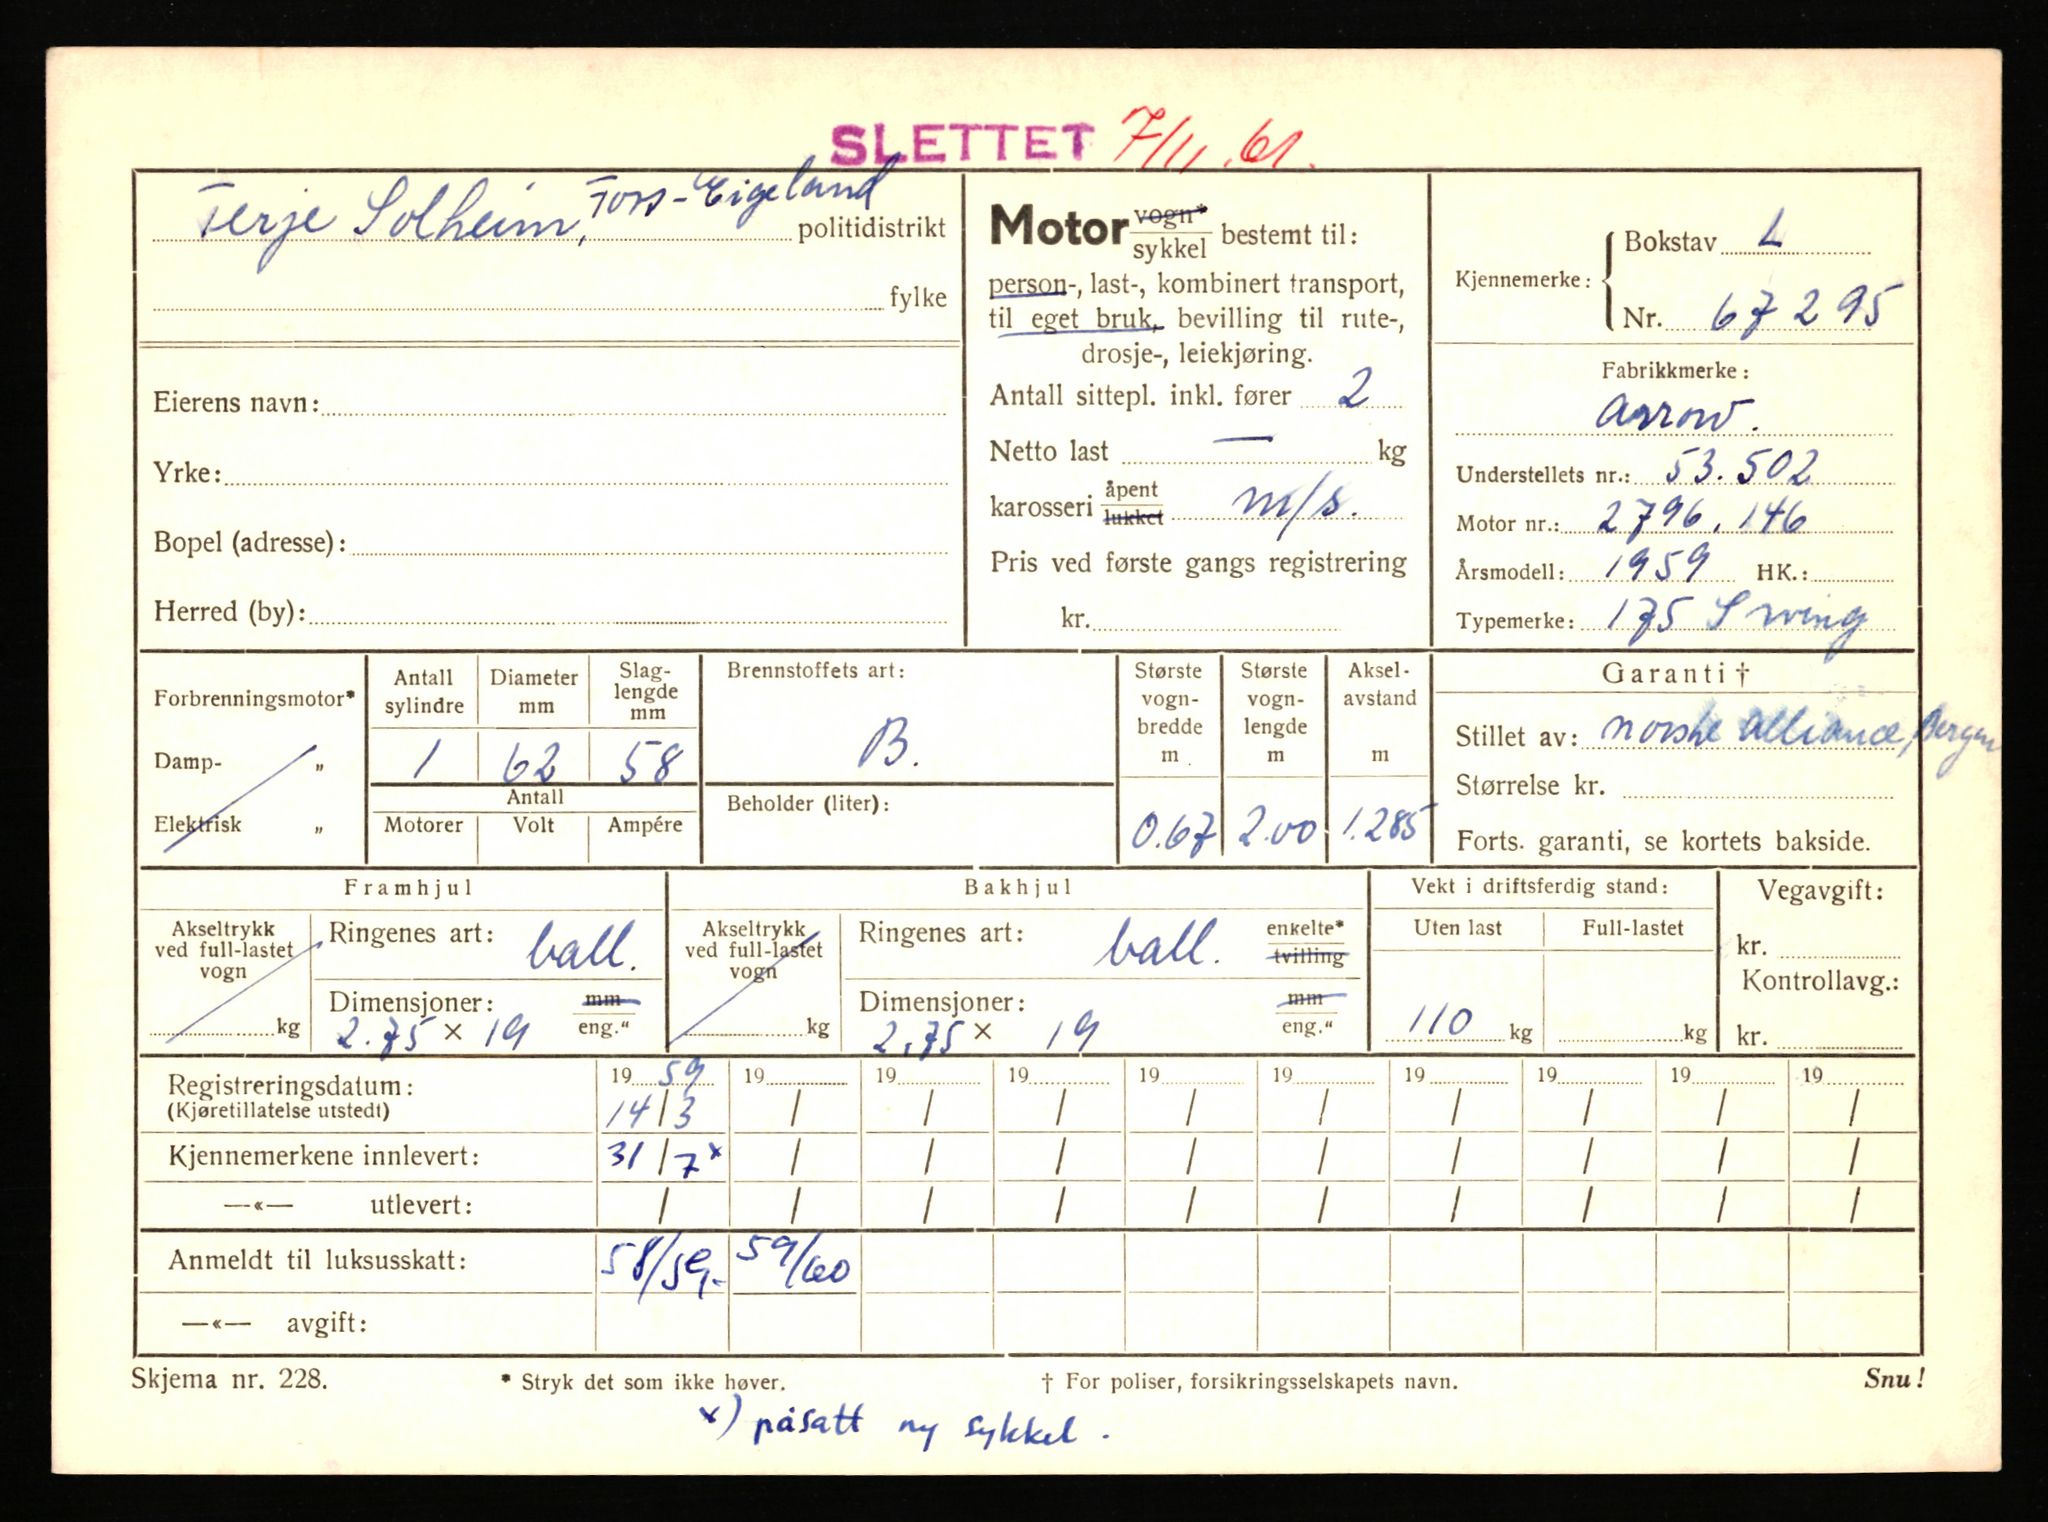 SLETTET 7/11.61.
Terje Solheim, Foss-Eigeland politidistrikt
fylke
Eierens navn:
Yrke:
Bopel (adresse):
Herred (by):
Motor vogn* / sykkel bestemt til:
person-, last-, kombinert transport,
til eget bruk, bevilling til rute-,
drosje-, leiekjøring.
Antall sittepl. inkl. fører 2
Netto last — kg
karosseri åpent / lukket m/s.
Pris ved første gangs registrering
kr.
Kjennemerke: Bokstav L
Nr. 67295
Fabrikkmerke:
Arrow.
Understellets nr.: 53.502
Motor nr.: 2796.146
Årsmodell: 1959 HK.:
Typemerke: 175 Swing
Forbrenningsmotor*
Damp- „
Elektrisk „
Antall sylindre Diameter mm Slag-lengde mm
1 62 58
Antall
Motorer Volt Ampére
Brennstoffets art:
B.
Beholder (liter):
Største vogn-bredde m Største vogn-lengde m Aksel-avstand m
0.67 2.00 1.285
Garanti †
Stillet av: Norske Alliance, Bergen
Størrelse kr.
Forts. garanti, se kortets bakside.
Framhjul
Akseltrykk ved full-lastet vogn
kg
Ringenes art: ball.
Dimensjoner: mm
2.75 × 19 eng."
Bakhjul
Akseltrykk ved full-lastet vogn
kg
Ringenes art: ball. enkelte* / tvilling
Dimensjoner: mm
2.75 × 19 eng."
Vekt i driftsferdig stand:
Uten last Full-lastet
110 kg kg
Vegavgift:
kr.
Kontrollavg.:
kr.
Registreringsdatum: 19 59 19 19 19 19 19 19 19 19 19
(Kjøretillatelse utstedt) 14/3 / / / / / / / / /
Kjennemerkene innlevert: 31/7 x / / / / / / / / /
—«— utlevert: / / / / / / / / / /
Anmeldt til luksusskatt: 58/59.- 59/60
—«— avgift:
Skjema nr. 228. * Stryk det som ikke høver. † For poliser, forsikringsselskapets navn. Snu!
x) påsatt ny sykkel.